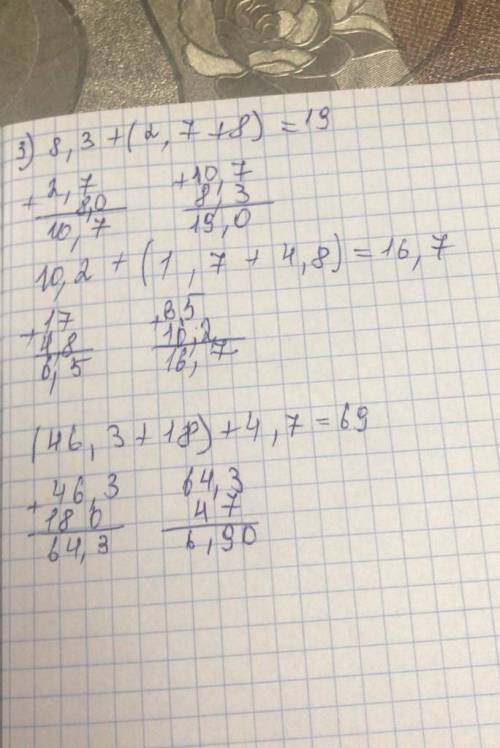 3) 8,3+(2,7+8)=19
+2,7 +10,7
8,0 8,3
10,7 19,0
10,2+(1,7+4,8)=16,7
+17 +6,5
4,8 10,2
6,5 16,7
(46,3+18)+4,7=69
+46,3 64,3
18 0 47
64,3 6,90